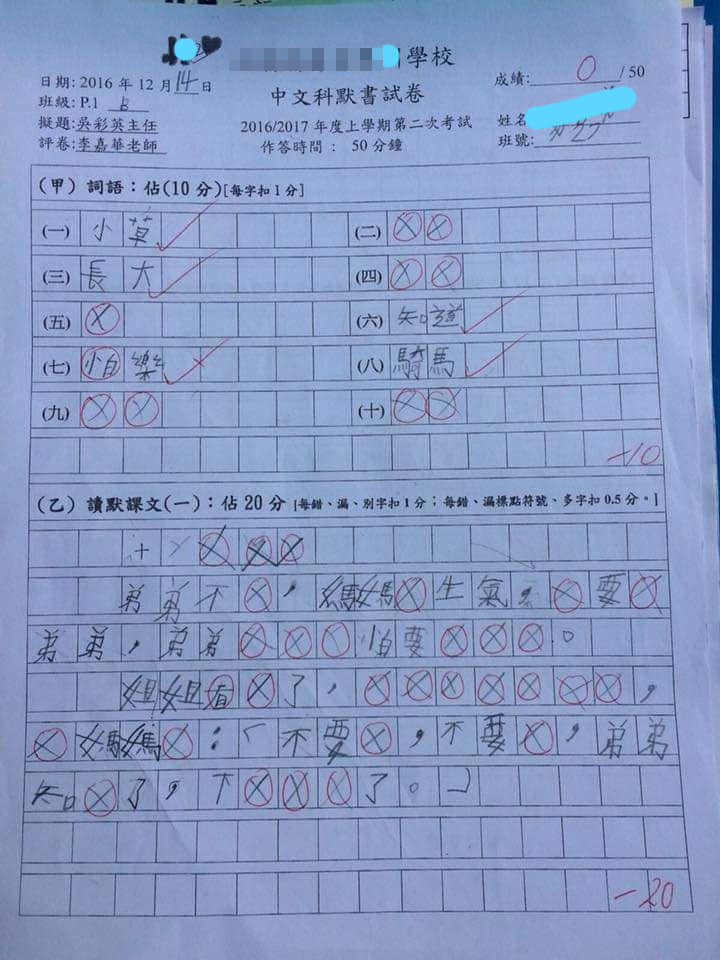 學校
日期: 2016 年 12 月 14 日
成績: 0 / 50
班級: P.1 B
中文科默書試卷
擬題: 吳彩英主任
2016/2017 年度上學期第二次考試
姓名
評卷: 李嘉華老師
作答時間 : 50 分鐘
班號:
(甲) 詞語:佔(10 分)[每字扣 1 分]
(一) 小草 (二)
(三) 長大 (四)
(五) (六) 知道
(七) 怕樂 (八) 騎馬
(九) (十)
-10
(乙) 讀默課文(一):佔 20 分 [每錯、漏、別字扣 1 分;每錯、漏標點符號、多字扣 0.5 分。]
十
弟弟不,媽媽生氣,要
弟弟,弟弟怕要。
姐姐看了,,
媽媽:「不要,不要,弟弟
知了,不了。」
-20